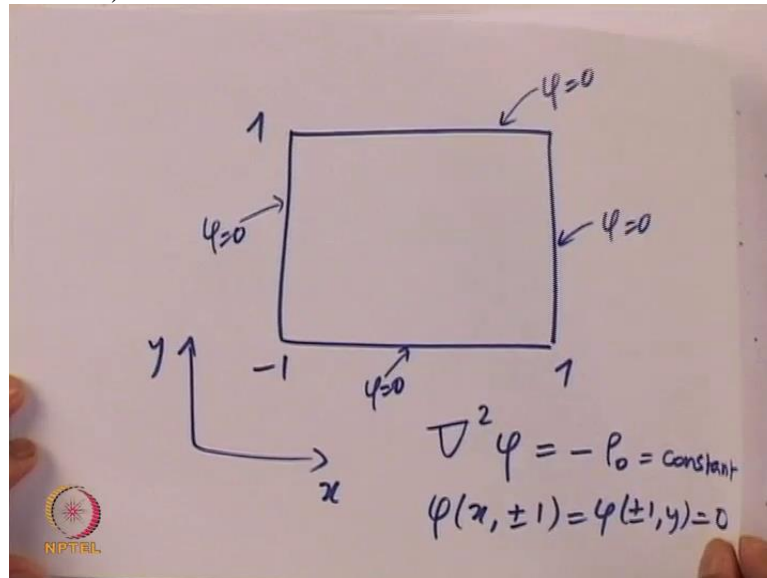 φ=0
1
φ=0
φ=0
y
-1
φ=0
1
x
∇²φ = -ρ₀ = constant
φ(x, ±1) = φ(±1, y) = 0
NPTEL